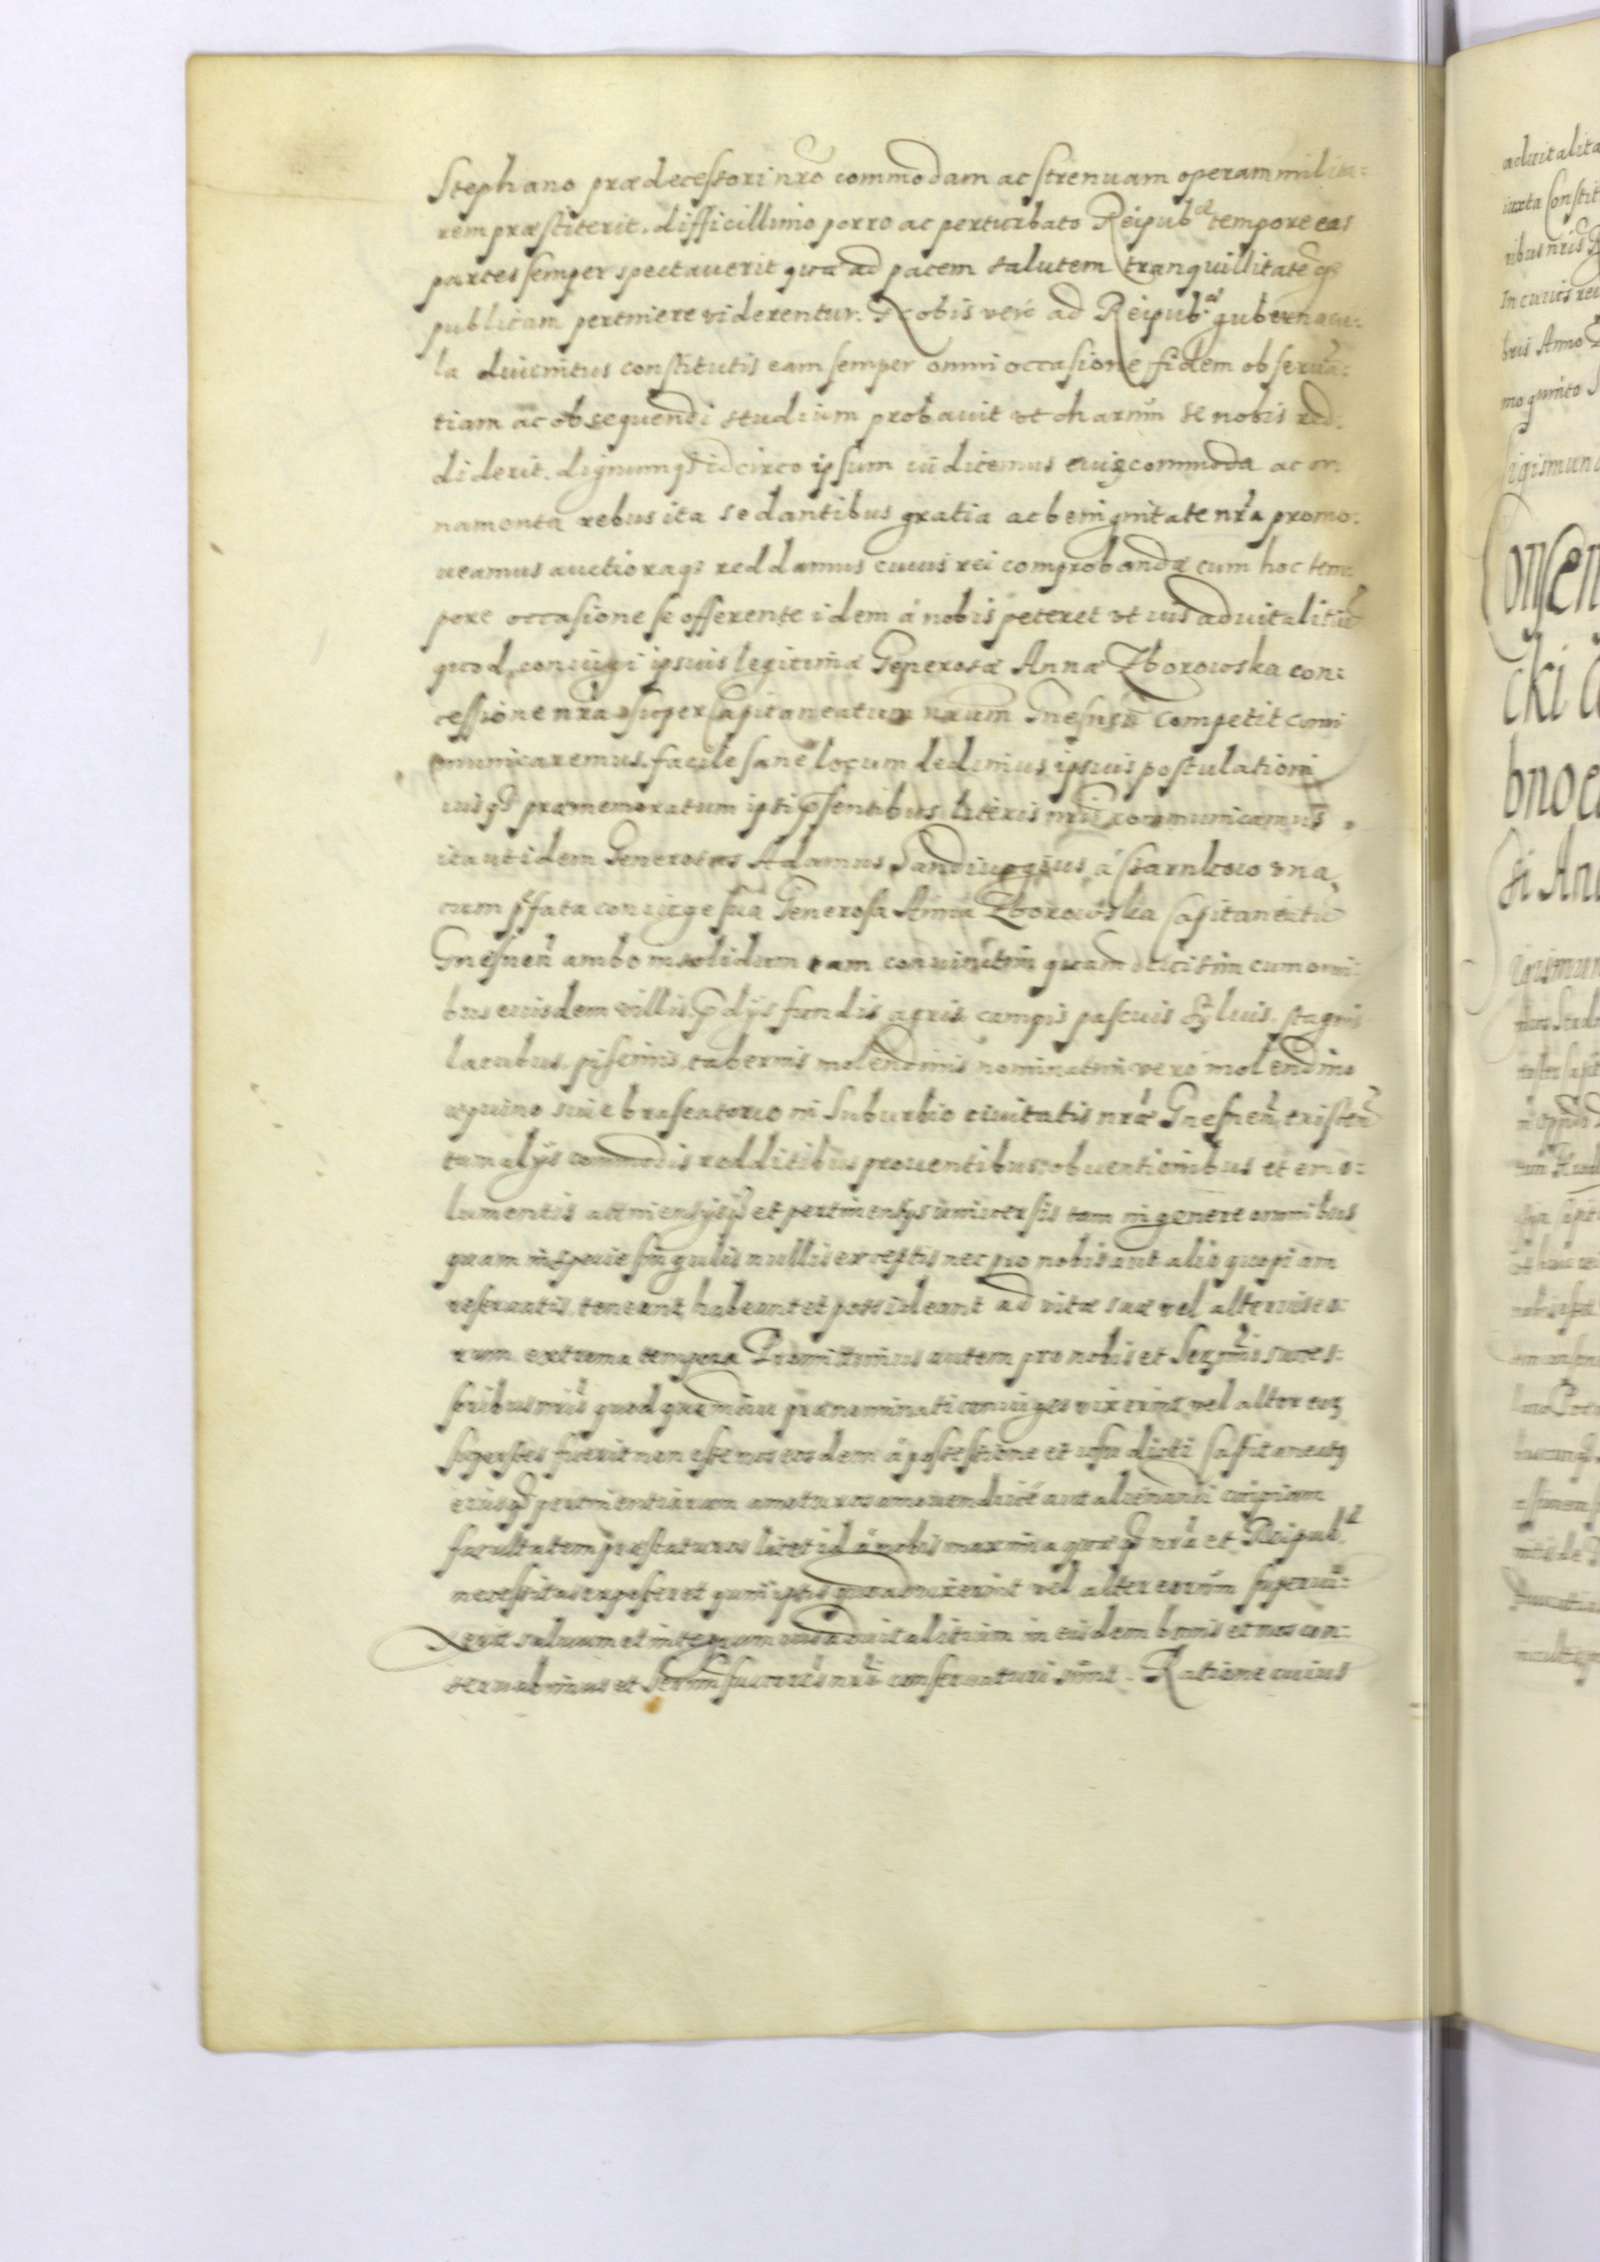 Stephano prædecessori nro commodam ac strenuam operam milita:
rem præstiterit. difficillimo porro ac perturbato Reipub.æ tempore eas
partes semper spectauerit quæ ad pacem salutem tranquillitatē q3
publicam pertinere viderentur. Nobis vero ad Reipub.æ gubernacu:
la diuinitus constitutis eam semper omni occasione fidem obserua:
tiam ac obsequendi studium probauit vt charum se nobis red:
diderit. dignumq3 idcirco ipsum iudicemus cuius commoda ac or
namenta rebus ita se dantibus gratia ac benignitate nra promo:
ueamus auctioraq3 reddamus cuius rei comprobandæ cum hoc tem
pore occasione se offerente idem á nobis peteret vt ius aduitalitiū
quod coniugi ipsius legitimæ Generosæ Annæ Zborowska con:
cessione nra super Capitaneatum nrum Gnesnen competit com
municaremus. facile sane locum dedimus ipsius postulationi
iusq3 præmemoratum ipsi psentibus literis nris communicamus,
ita ut idem Generosus Adamus Sandiuogius á Czarnkow vna
cum pfata coniuge sua Generosa Anna Zborowska Capitaneatū
Gnesnen ambo in solidum tam coniunctim quam diuisim cum omni:
bus eiusdem villis pdijs fundis agris campis pascuis syluis. stagnis
lacubus. piscinis. tabernis molendinis nominatim vero molendino
siue braseatorio in Suburbio ciuitatis nræ Gnesnen existen
tum alijs commodis redditibus prouentibus obuentionibus et emo:
lumentis attinensijsq3 et pertinensijs vniuersis tam in genere omnibus
quam in specie singulis nullis exceptis nec pro nobis aut alio quopiam
reseruatis. teneant habeant et possideant ad vitæ suæ vel alterius eo:
rum extrema tempora Promittimus autem pro nobis et Sermis succes:
soribus nris quod quamdiu prænominati coniuges vixerint vel alter eorū
superstes fuerit non esse nos eosdem á possessione et vsu dicti Capitaneatus
eiusq3 pertinentiarum amoturos amouendiue aut alienandi cuipiam
facultatem præstaturos licet id á nobis maxima quæq3 nra et Reipub.æ
necessitas exposceret quin ipsis quoad vixerint vel alter eorum superui:
xerit saluum et integrum ius aduitalitium in eisdem bonis et nos con:
seruabimus et Sermi successores nri conseruaturi sunt. Ratione cuius